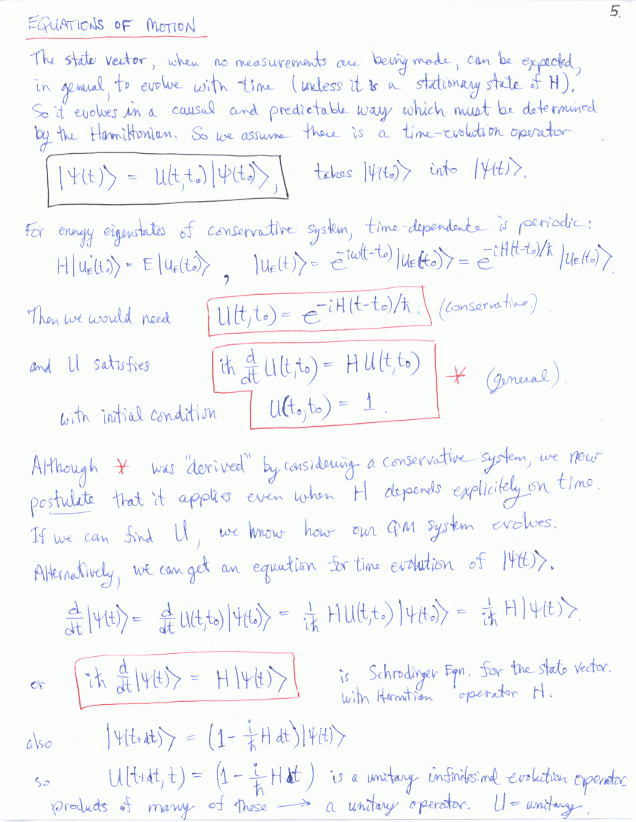 5.
EQUATIONS OF MOTION
The state vector, when no measurements are being made, can be expected,
in general, to evolve with time (unless it is a stationary state of H).
So it evolves in a causal and predictable way which must be determined
by the Hamiltonian. So we assume there is a time-evolution operator
|Ψ(t)⟩ = U(t,t₀)|Ψ(t₀)⟩, takes |Ψ(t₀)⟩ into |Ψ(t)⟩.
For energy eigenstates of conservative system, time-dependence is periodic:
H|u_E(t₀)⟩ = E|u_E(t₀)⟩ , |u_E(t)⟩ = e^{-iω(t-t₀)}|u_E(t₀)⟩ = e^{-iH(t-t₀)/ħ}|u_E(t₀)⟩.
Then we would need U(t,t₀) = e^{-iH(t-t₀)/ħ}. (conservative)
and U satisfies iħ d/dt U(t,t₀) = H U(t,t₀) * (general).
with initial condition U(t₀,t₀) = 1.
Although * was "derived" by considering a conservative system, we now
postulate that it applies even when H depends explicitely on time.
If we can find U, we know how our QM system evolves.
Alternatively, we can get an equation for time evolution of |Ψ(t)⟩.
d/dt |Ψ(t)⟩ = d/dt U(t,t₀)|Ψ(t₀)⟩ = 1/iħ H U(t,t₀)|Ψ(t₀)⟩ = 1/iħ H|Ψ(t)⟩.
or iħ d/dt |Ψ(t)⟩ = H|Ψ(t)⟩ is Schrodinger Eqn. for the state vector.
with Hermitian operator H.
also |Ψ(t+dt)⟩ = (1 - i/ħ H dt)|Ψ(t)⟩
so U(t+dt, t) = (1 - i/ħ H dt) is a unitary infinitesimal evolution operator.
products of many of these → a unitary operator. U = unitary.